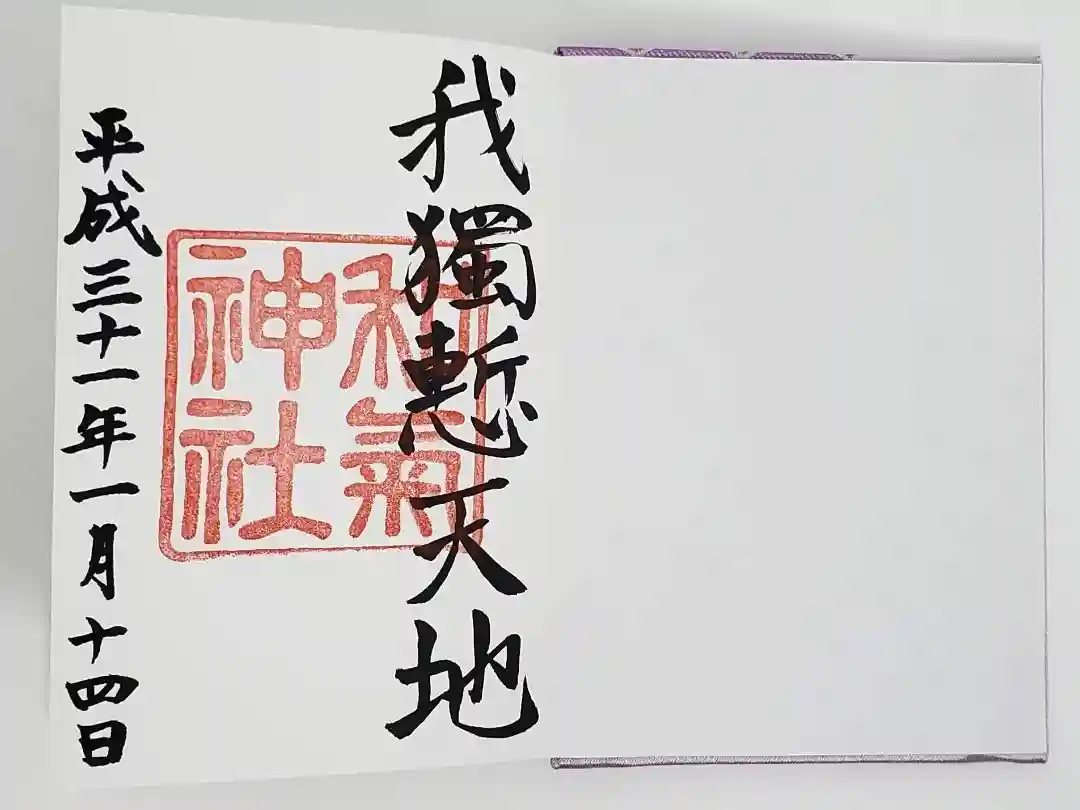 我獨慙天地
和氣神社
平成三十一年一月十四日